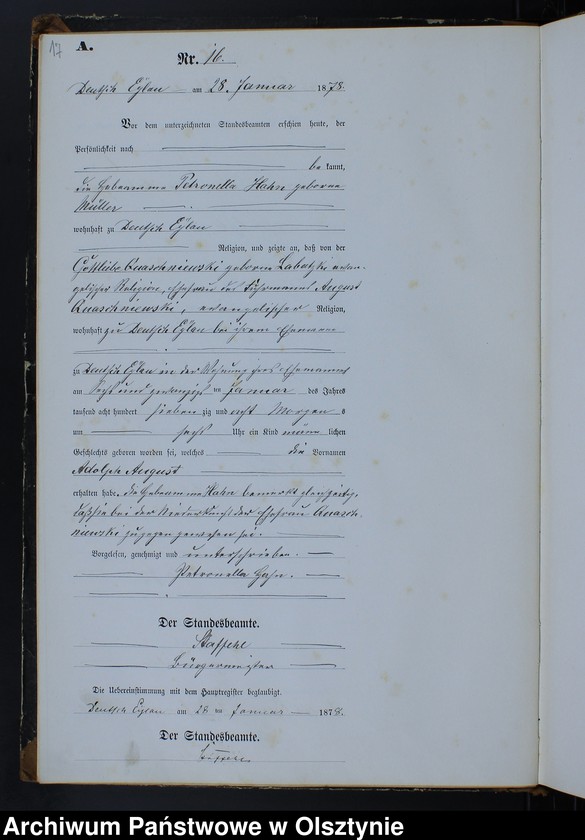 17
A.
Nr. 16.
Deutsch Eylau am 28. Januar 1878.
Vor dem unterzeichneten Standesbeamten erschien heute, der
Persönlichkeit nach
bekannt,
die Hebeamme Petronella Hahn geborne
Müller
wohnhaft zu Deutsch Eylau
Religion, und zeigte an, daß von der
Gottliebe Quaschniewski geborne Labatzki evan-
gelischer Religion, Ehefrau des Fuhrmanns August
Quaschniewski, evangelischer Religion,
wohnhaft zu Deutsch Eylau bei ihrem Ehemanne
zu Deutsch Eylau in der Wohnung ihres Ehemannes
am sechs und zwanzigsten Januar des Jahres
tausend acht hundert siebenzig und acht Morgens
um sechs Uhr ein Kind männlichen
Geschlechts geboren worden sei, welches die Vornamen
Adolph August
erhalten habe. die Hebeamme Hahn bemerkt gleichzeitig,
daß sie bei der Niederkunft der Ehefrau Quasch-
niewski zugegen gewesen sei.
Vorgelesen, genehmigt und unterschrieben.
Petronella Hahn.
Der Standesbeamte.
Bürgermeister
Die Uebereinstimmung mit dem Hauptregister beglaubigt.
Deutsch Eylau am 28 ten Januar 1878.
Der Standesbeamte.
Archiwum Państwowe w Olsztynie